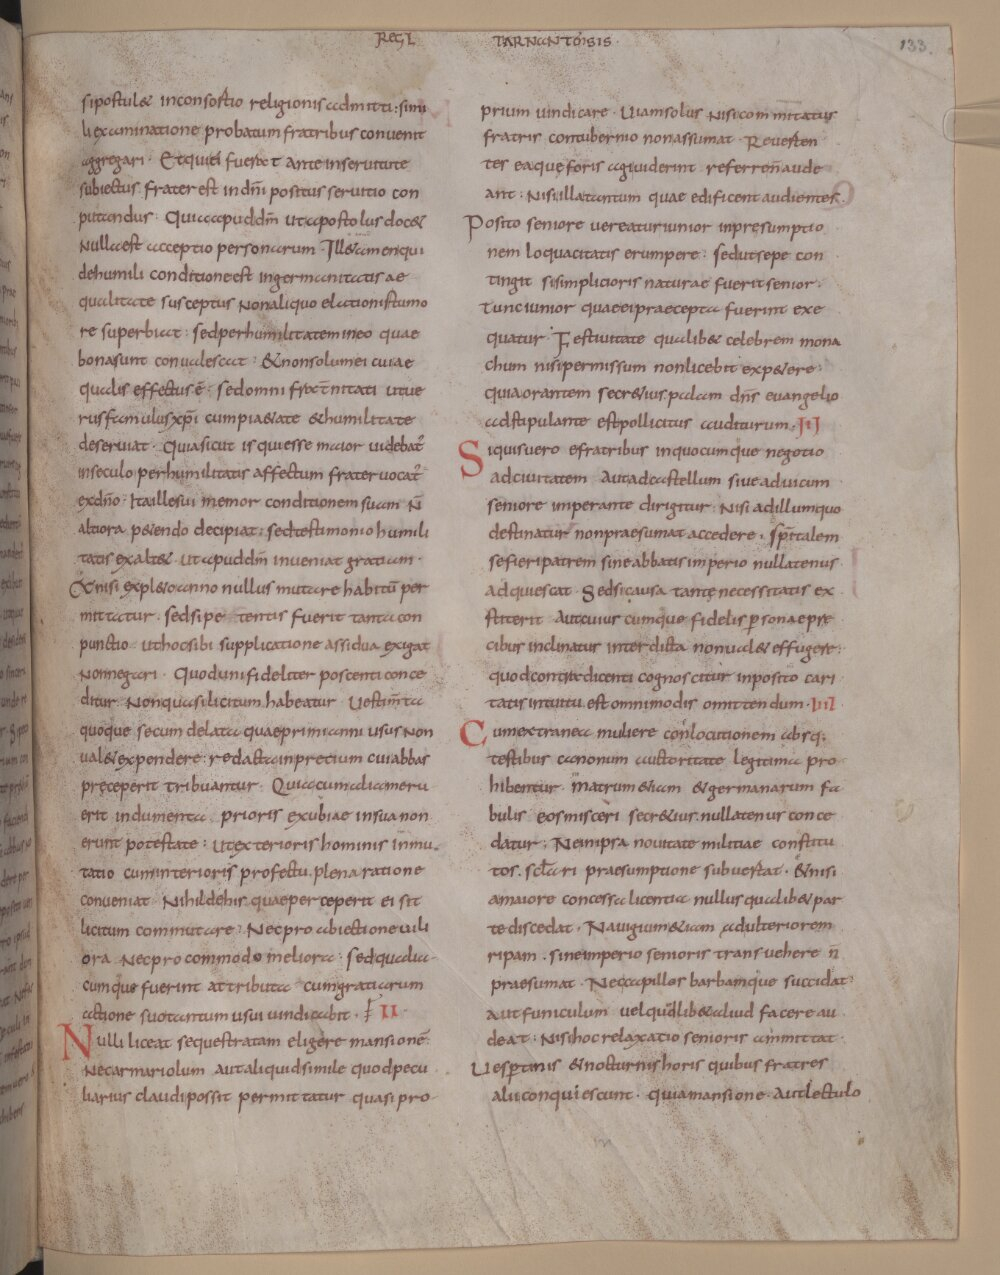 REGL TARNANTENSIS·
133.
si postulet in consortio religionis admitti: simi
li examinatione probatum fratribus convenit
aggregari· Et qui ei fuerat ante in servitute
subiectus. frater est in dñi positus servitio con
putandus· Quia apud dm̄ ut apostolus docet
Nulla est acceptio personarum· Ille tamen qui
de humili conditione est in germanitatis ae
qualitate susceptus Non aliquo elationis tumo
re superbiat: sed per humilitatem in eo quae
bona sunt convalescat: & non solum ei cui ae
qualis effectus ē· sed omni fraternitati ut ve
rus famulus xp̄i cum pietate & humilitate
deserviat· Quia sicut is qui esse maior videbat̄
in seculo per humilitatis affectum frater vocat̄
ex dn̄o· Ita ille sui memor conditionem suam N̄
altiora petendo decipiat: sed testimonio humili
tatis exaltet· ut apud dm̄ inveniat gratiam·
Et nisi expleto anno nullus mutare habitū per
mittatur· sed si pe tentis fuerit tanta con
punctio ut hoc sibi supplicatione assidua exigat
Non negari· Quod uni fideliter poscenti conce
ditur Non quasi licitum habeatur Vestim̄ta
quoque secum delata quae primi anni usus Non
valet expendere: redacta in pretium cui abbas
preceperit tribuantur· Quia cum alia meru
erit indumenta prioris exubiae in sua non
erunt potestate: ut exterioris hominis inmu
tatio cum interioris profectu. plena ratione
conveniat· Nihil de his. quae perceperit ei sit
licitum commutare: Nec pro abiectione vili
ora Nec pro commodo meliora: sed qualia
cumque fuerint attributa cum gratiarum
actione suo tantum usui vindicabit· II
Nulli liceat sequestratam eligere mansionē·
Nec armariolum aut aliquid simile quod pecu
liarius claudi possit permittatur quasi pro
prium vindicare· Viam solus Nisi comitatus
fratris contubernio non assumat· Reverten
tes ea que foris agi viderint referre non aude
ant· Nisi illa tantum quae edificent audientes·
Posito seniore vereatur iunior in presumptio
nem loquacitatis erumpere: sed ut sepe con
tingit si simplicioris naturae fuerit senior·
Tunc iunior quae ei praecepta fuerint exe
quatur· Festivitate qualibet celebrem mona
chum nisi permissum non licebit expetere·
quia orantem secretius. palam dn̄s evangelio
adstipulante est pollicitus auditurum· III
Si quis vero e fratribus in quocumque negotio
ad civitatem Aut ad castellum sive ad vicum
seniore imperante dirigitur· Nisi ad illum quo
destinatur non praesumat accedere· sp̄italem
se fieri patrem sine abbatis imperio nullatenus
adquiescat· Sed si causa tantę necessitatis ex
stiterit Aut cuiuscumque fidelis personae pre
cibus inclinatur interdicta non valet effugere·
quod contradicenti cognoscitur in posito cari
tatis intuitu. est omnimodis omittendum· IIII
Cum extranea muliere conlocutionem absq;
testibus canonum auctoritate legitima pro
hibentur· matrum etiam & germanarum fa
bulis eos misceri secretius. nullatenus conce
datur· Ne in ipsa novitate militiae constitu
tos. sclari praesumptione subvertat· & nisi
a maiore concessa licentia nullus qualibet par
te discedat· Navigium etiam ad ulteriorem
ripam· sine imperio senioris transvehere n̄
praesumat· Nec capillos barbamque succidat
aut funiculum vel quodlibet aliud facere au
deat· Nisi hoc relaxatio senioris ammittat·
Vespertinis & nocturnis horis quibus fratres
alii conquiescunt· qui a mansione· Aut lectulo